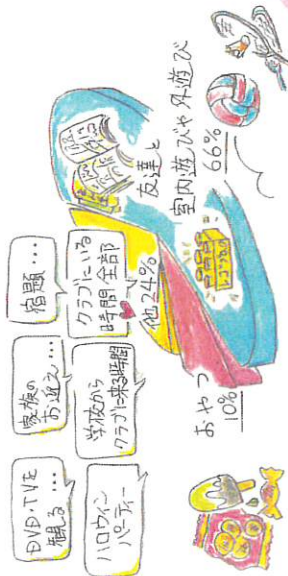 DVD・TVを
観る…
家族の
お迎え…
宿題…
ハロウィン
パーティー
学校から
クラブに来る時間
クラブにいる
時間全部
他24%
おやつ
10%
友達と
室内遊びや外遊び
66%